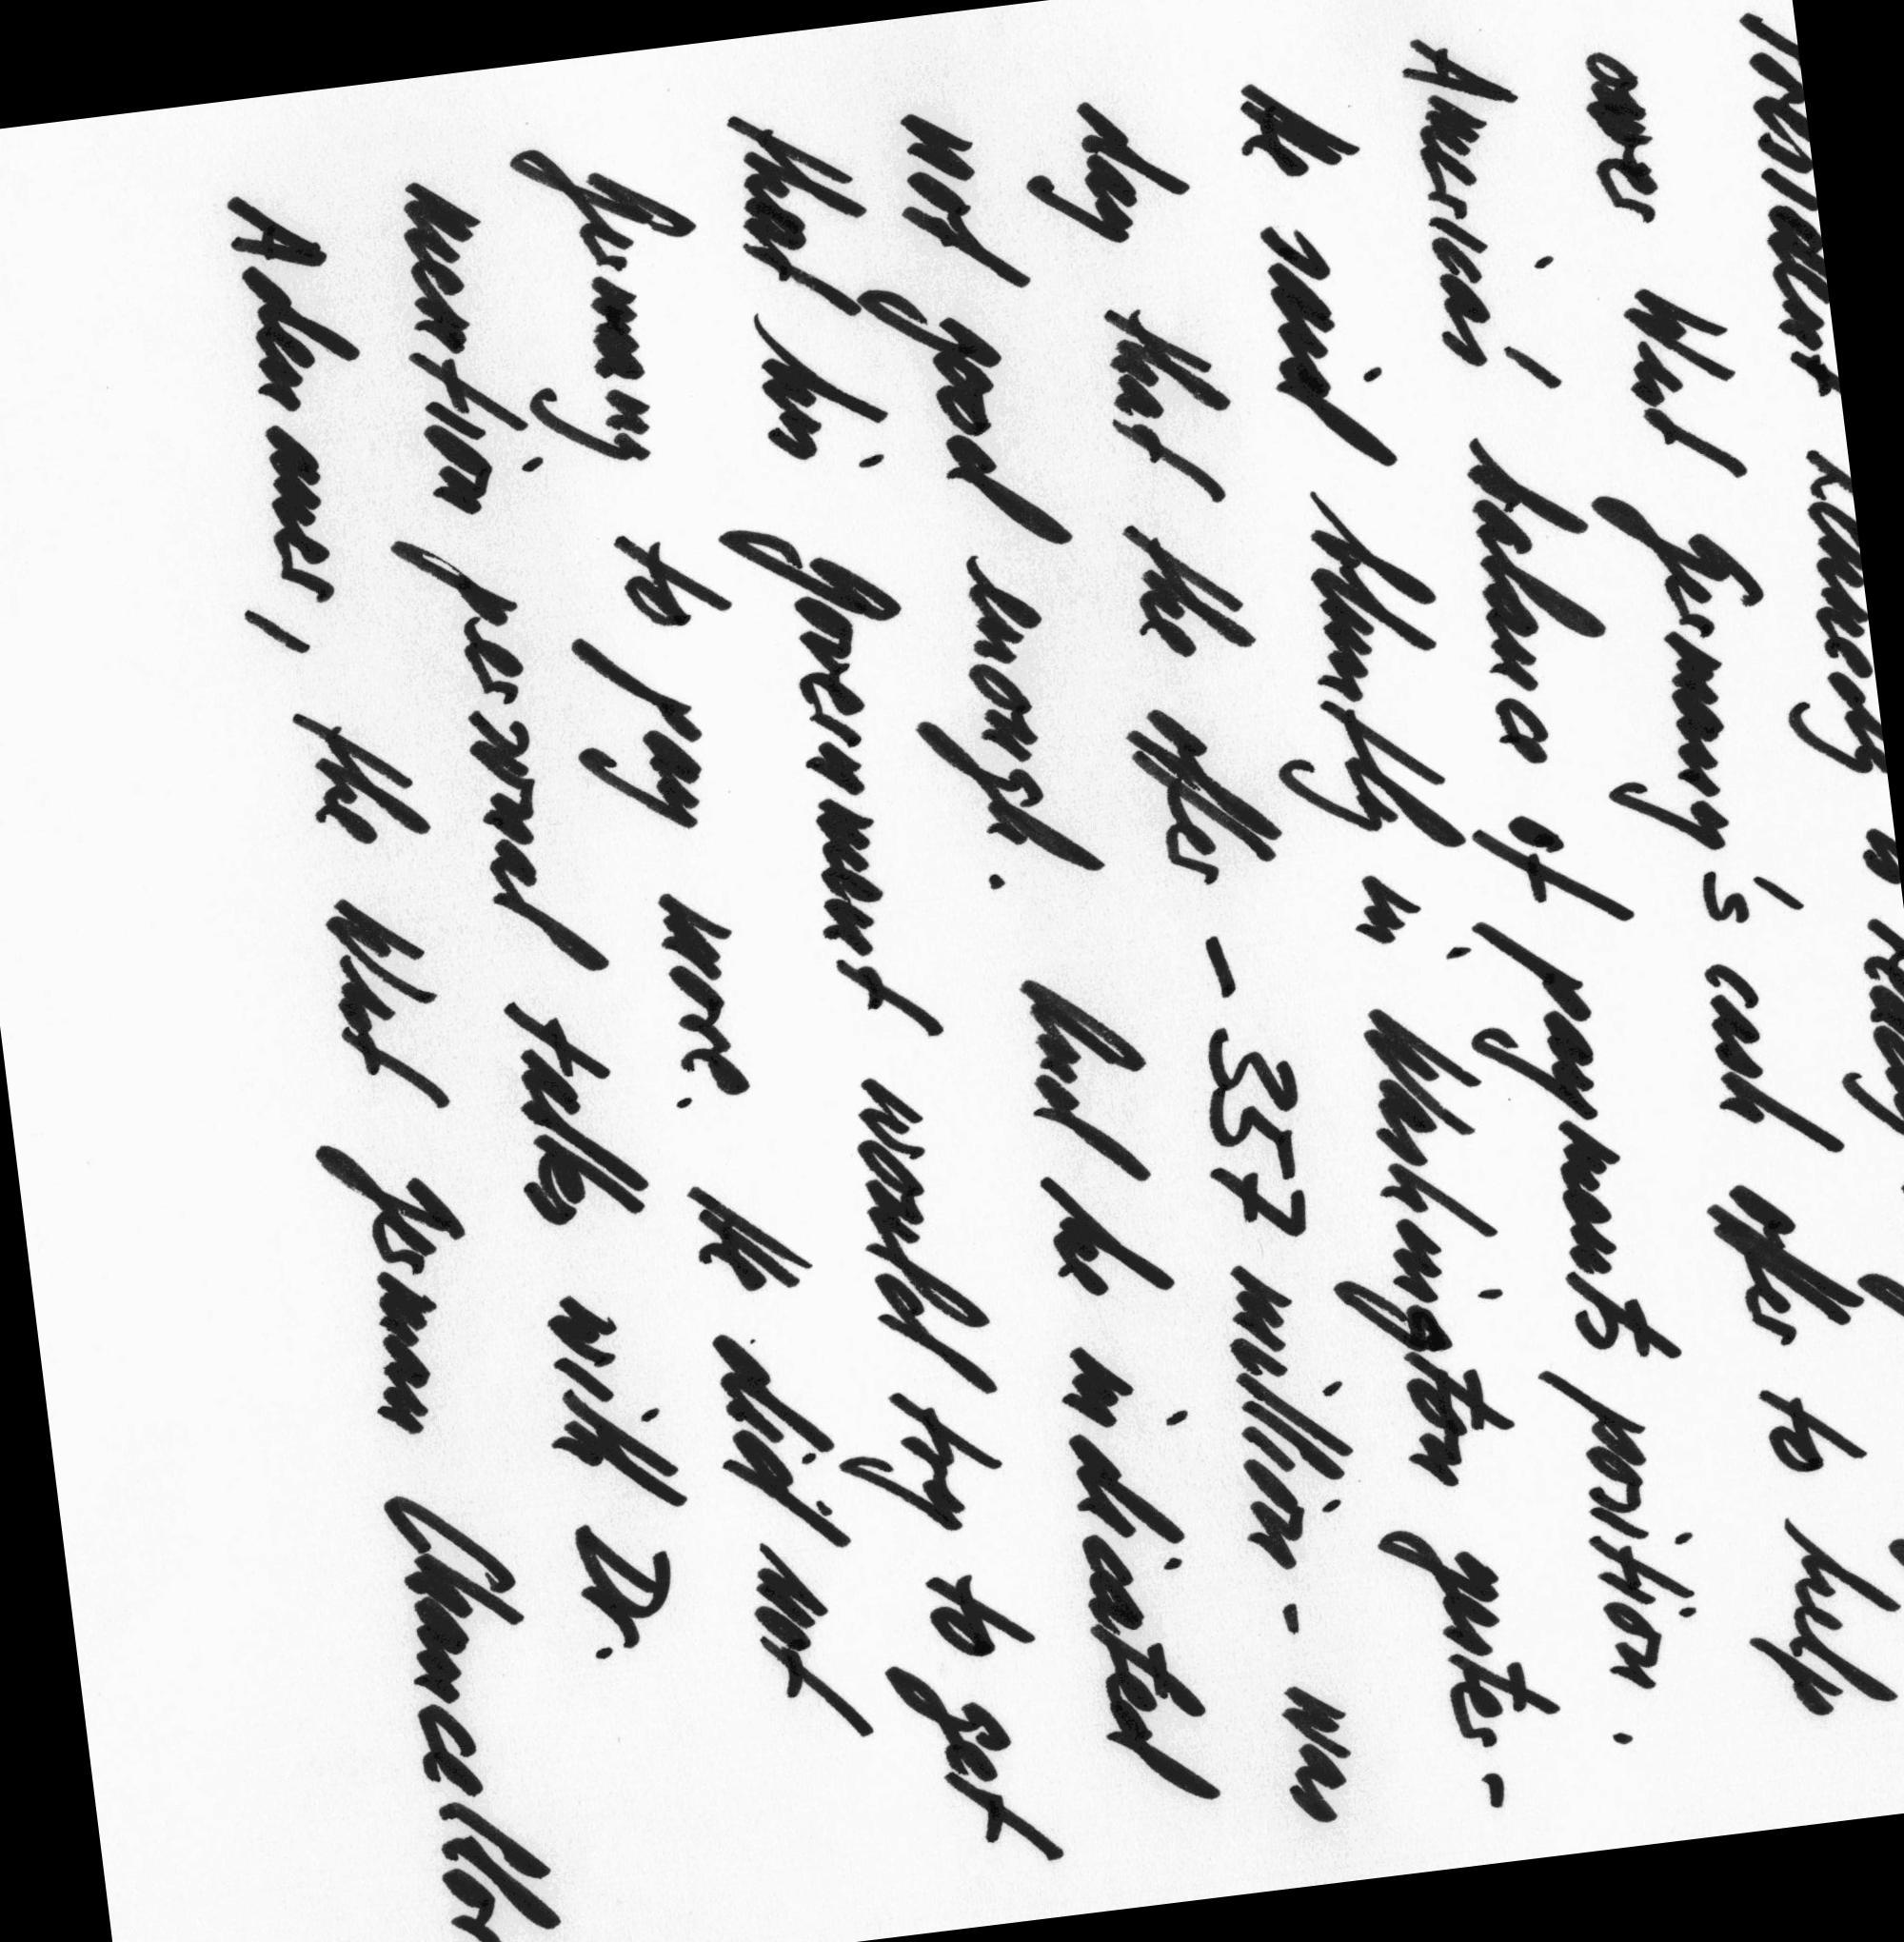 President Kennedy is ready
over West Germany's cash offer to help
America's balance of payments position.
He said bluntly in Washington yester-
day that the offer - 357 million - was
not good enough. And he indicated
that his Government would try to get
Germany to pay more. He did not
mention personal talks with Dr.
Adenauer, the West German Chancellor